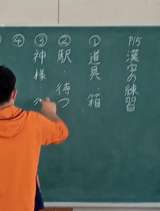 P15 漢字の練習
① 道具 箱
② 駅・待つ
③ 神様
④